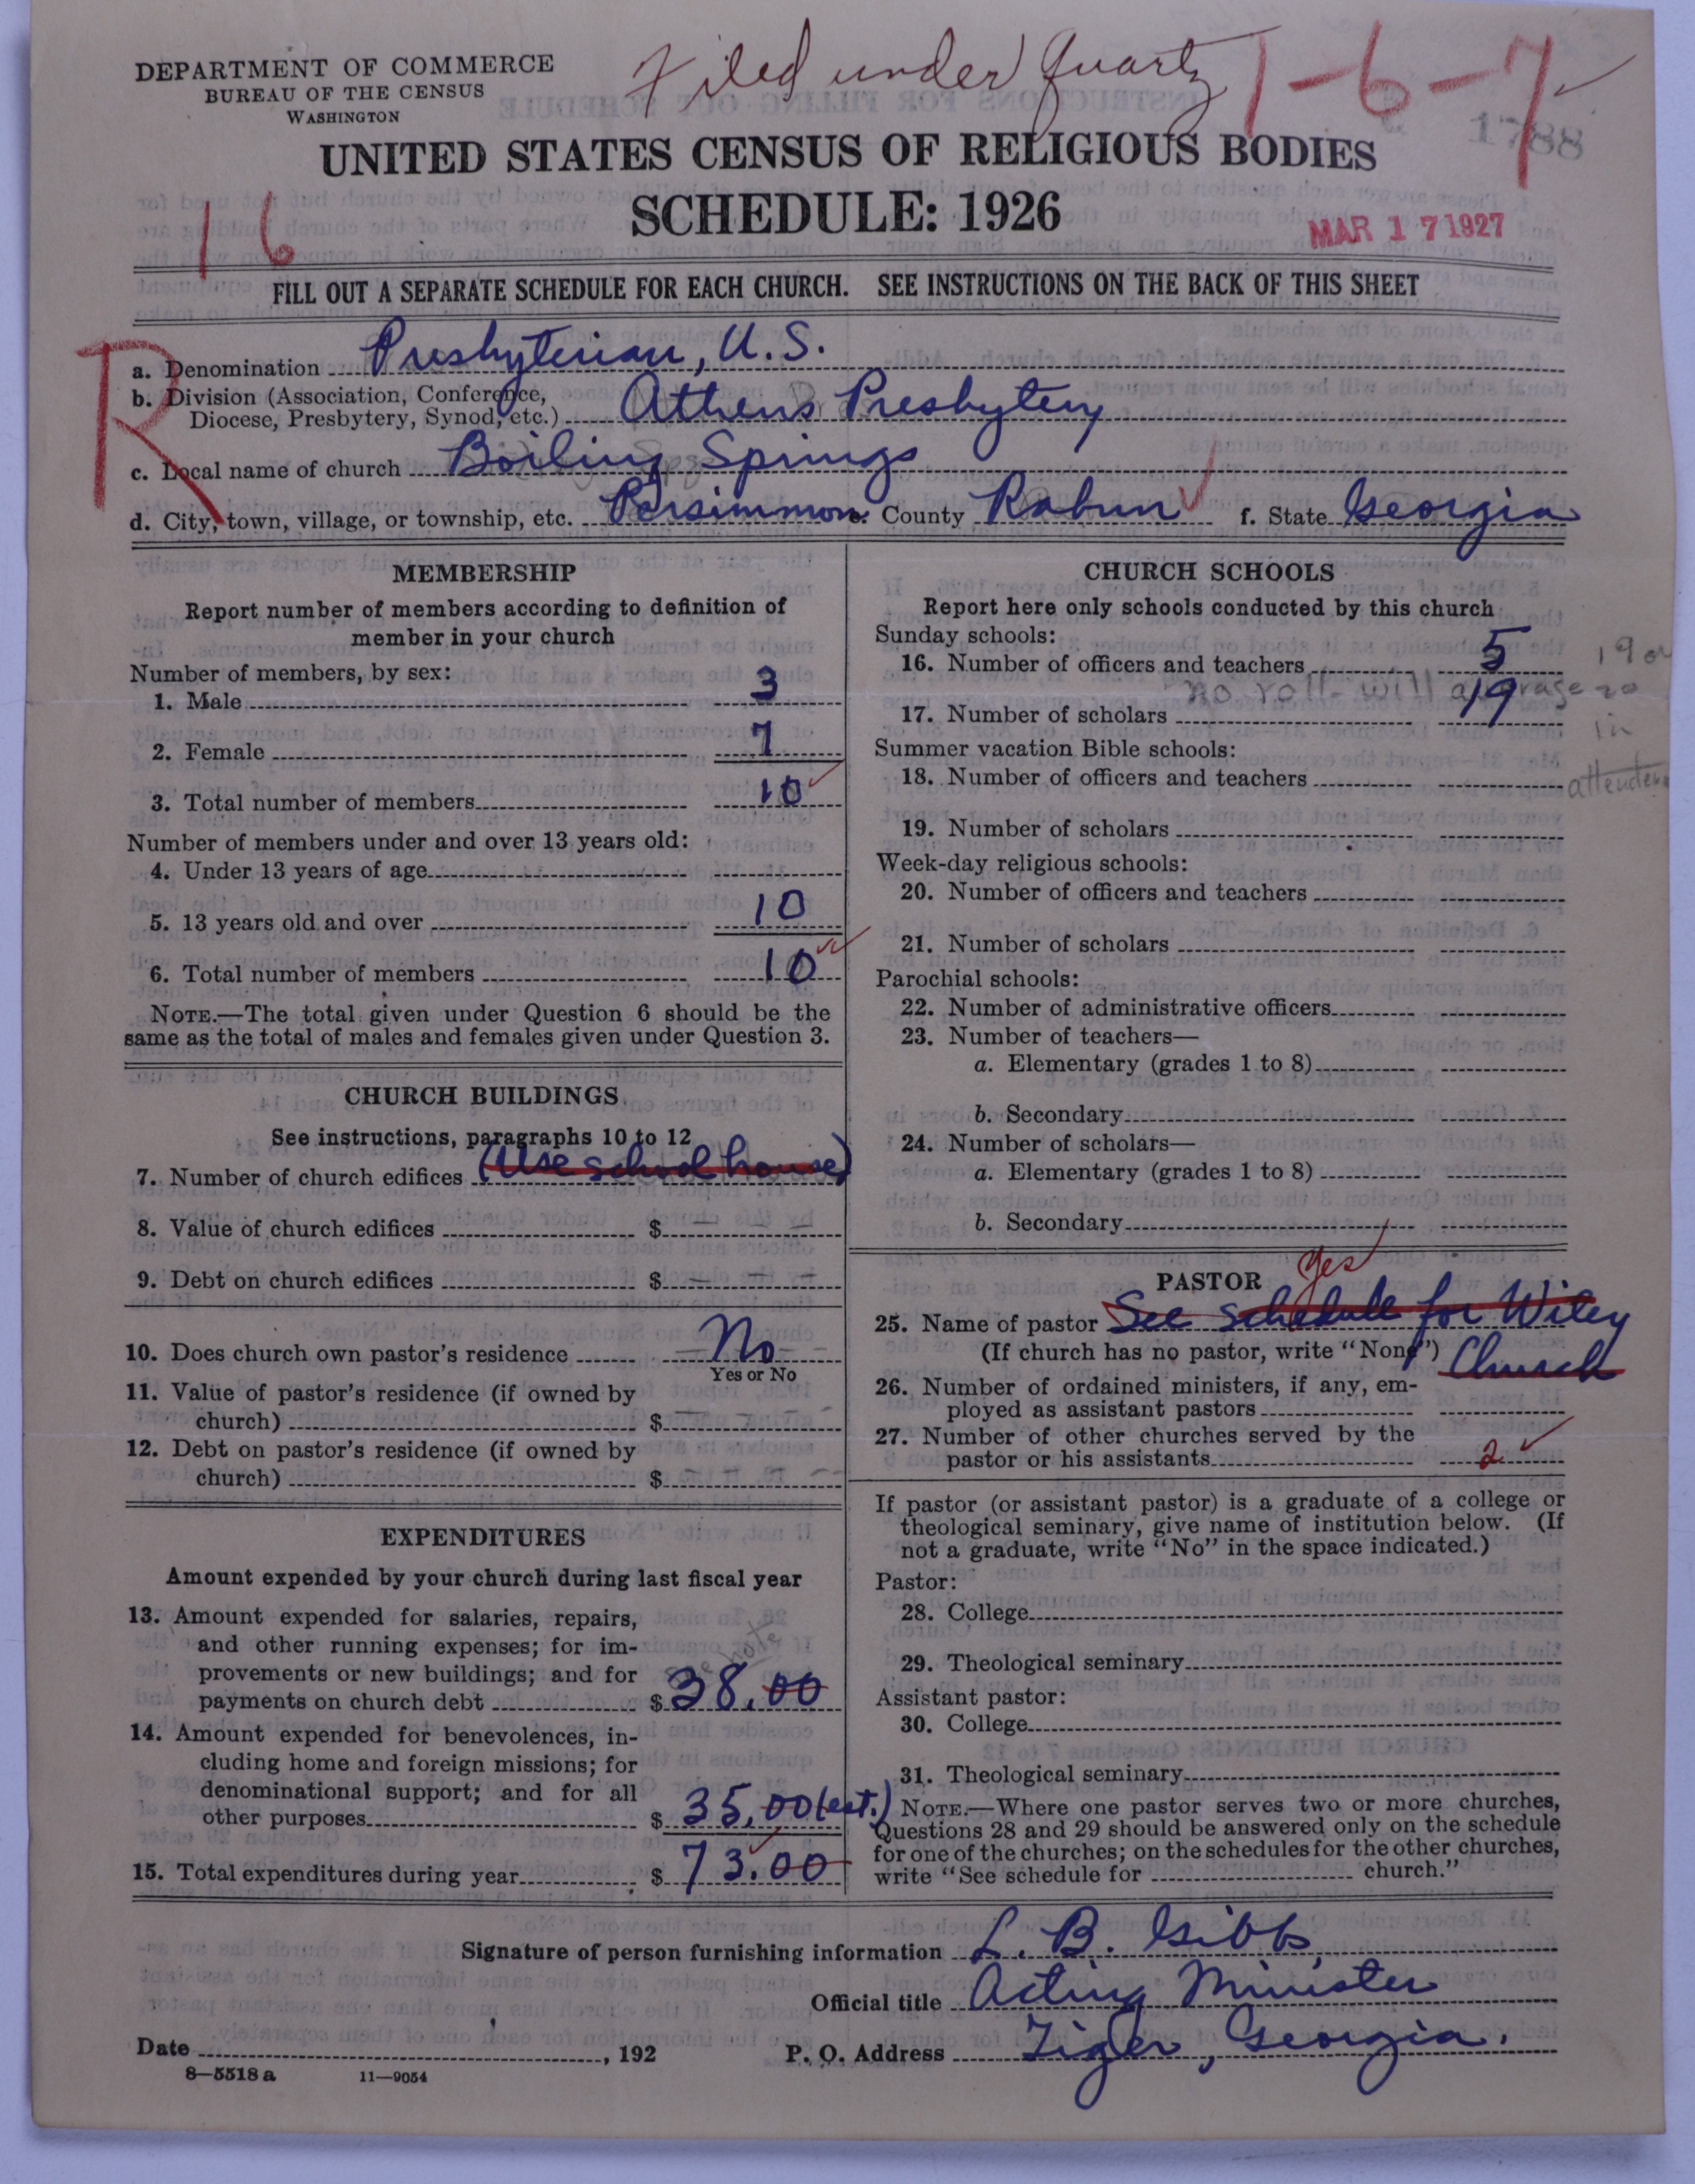 Filed under Quartz 1-6-7
DEPARTMENT OF COMMERCE
BUREAU OF THE CENSUS
WASHINGTON
1788
UNITED STATES CENSUS OF RELIGIOUS BODIES
SCHEDULE: 1926
16
MAR 17 1927
FILL OUT A SEPARATE SCHEDULE FOR EACH CHURCH. SEE INSTRUCTIONS ON THE BACK OF THIS SHEET
R
a. Denomination Presbyterian, U.S.
b. Division (Association, Conference,
Diocese, Presbytery, Synod, etc.) Athens Presbytery
c. Local name of church Boiling Springs
d. City, town, village, or township, etc. Persimmon e. County Rabun f. State Georgia
MEMBERSHIP
Report number of members according to definition of
member in your church
Number of members, by sex:
1. Male 3
2. Female 7
3. Total number of members 10
Number of members under and over 13 years old:
4. Under 13 years of age
5. 13 years old and over 10
6. Total number of members 10
NOTE.—The total given under Question 6 should be the
same as the total of males and females given under Question 3.
CHURCH BUILDINGS
See instructions, paragraphs 10 to 12
7. Number of church edifices (Use school house)
8. Value of church edifices $ — —
9. Debt on church edifices $ — — —
10. Does church own pastor's residence No
Yes or No
11. Value of pastor's residence (if owned by
church) $ — — —
12. Debt on pastor's residence (if owned by
church) $ — — —
EXPENDITURES
Amount expended by your church during last fiscal year
13. Amount expended for salaries, repairs,
and other running expenses; for im-
provements or new buildings; and for
see note
payments on church debt $ 38.00
14. Amount expended for benevolences, in-
cluding home and foreign missions; for
denominational support; and for all
other purposes $ 35,00 (est.)
15. Total expenditures during year $ 73.00
CHURCH SCHOOLS
Report here only schools conducted by this church
Sunday schools:
16. Number of officers and teachers 5
19 or
no roll - will average 20
17. Number of scholars 19
in
attendance
Summer vacation Bible schools:
18. Number of officers and teachers
19. Number of scholars
Week-day religious schools:
20. Number of officers and teachers
21. Number of scholars
Parochial schools:
22. Number of administrative officers
23. Number of teachers—
a. Elementary (grades 1 to 8)
b. Secondary
24. Number of scholars—
a. Elementary (grades 1 to 8)
b. Secondary
PASTOR Yes
25. Name of pastor See schedule for Wiley
(If church has no pastor, write "None") Church
26. Number of ordained ministers, if any, em-
ployed as assistant pastors
27. Number of other churches served by the
pastor or his assistants 2
If pastor (or assistant pastor) is a graduate of a college or
theological seminary, give name of institution below. (If
not a graduate, write "No" in the space indicated.)
Pastor:
28. College
29. Theological seminary
Assistant pastor:
30. College
31. Theological seminary
NOTE.—Where one pastor serves two or more churches,
Questions 28 and 29 should be answered only on the schedule
for one of the churches; on the schedules for the other churches,
write "See schedule for church."
Signature of person furnishing information L. B. Gibbs
Official title Acting Minister
Date , 192 P. O. Address Tiger, Georgia.
8—5518 a 11—9054